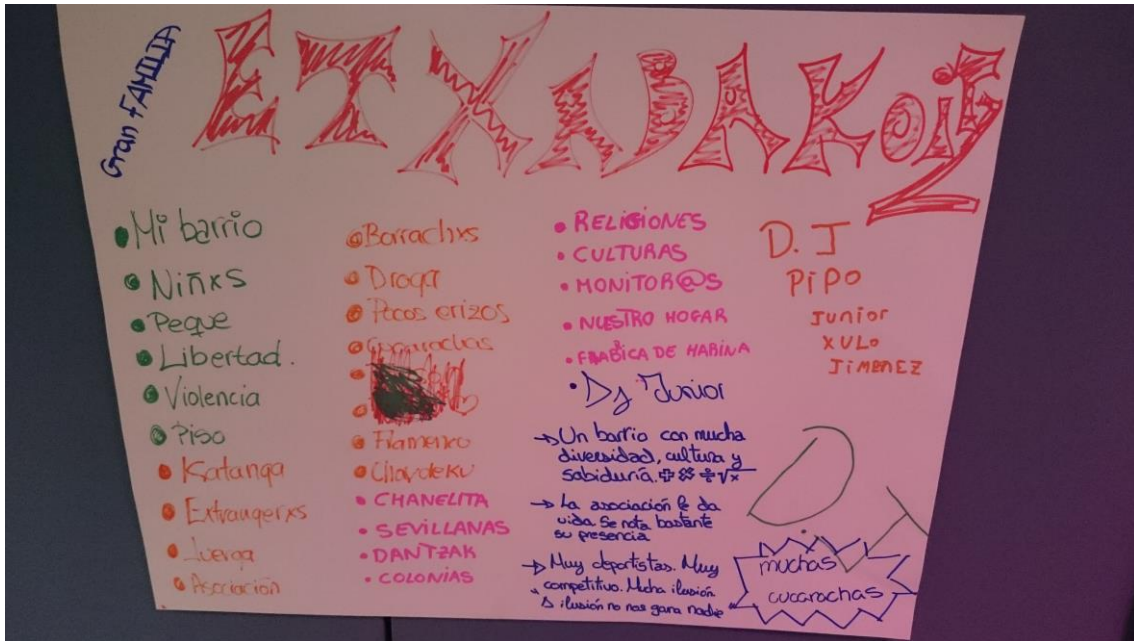 Gran FAMILIA
ETXABAKOITZ
• Mi barrio
• Niñxs
• Peque
• Libertad.
• Violencia
• Piso
• Katanga
• Extrangerxs
• Juerga
• Asociación
• Borrachxs
• Droga
• Pocos erizos
• Cucarachas
• Flamenku
• CHANELITA
• SEVILLANAS
• DANTZAK
• COLONIAS
• RELIGIONES
• CULTURAS
• MONITOR@S
• NUESTRO HOGAR
• FRABICA DE HARINA
• Dj Junior
→ Un barrio con mucha
diversidad, cultura y
sabiduría.
→ La asociación le da
vida. Se nota bastante
su presencia
→ Muy deportistas. Muy
competitivo. Mucha ilusión
A ilusión no nos gana nadie
D.J
PiPO
Junior
XULO
JiMENEZ
DJ
muchas
cucarachas